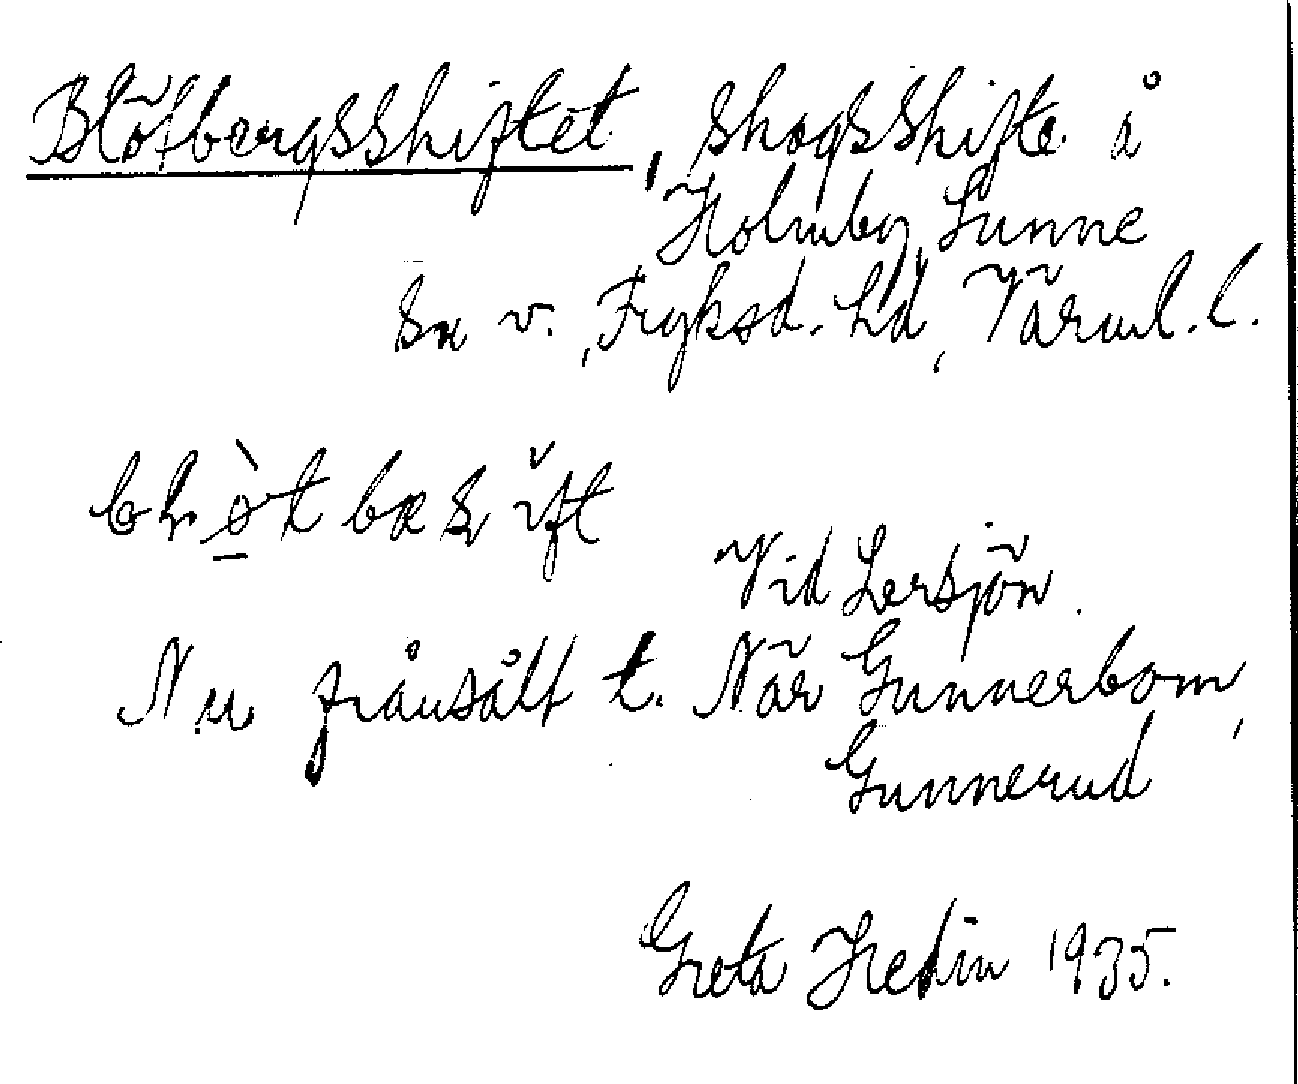 Blötbergsskiftet, skogsskifte å
Holmby, Sunne
sn v., Fryksd. hd, Värml. l.
Vid Lersjön.
Nu frånsålt t. När Gunnerbom,
Gunnerud
Greta Hedin 1935.